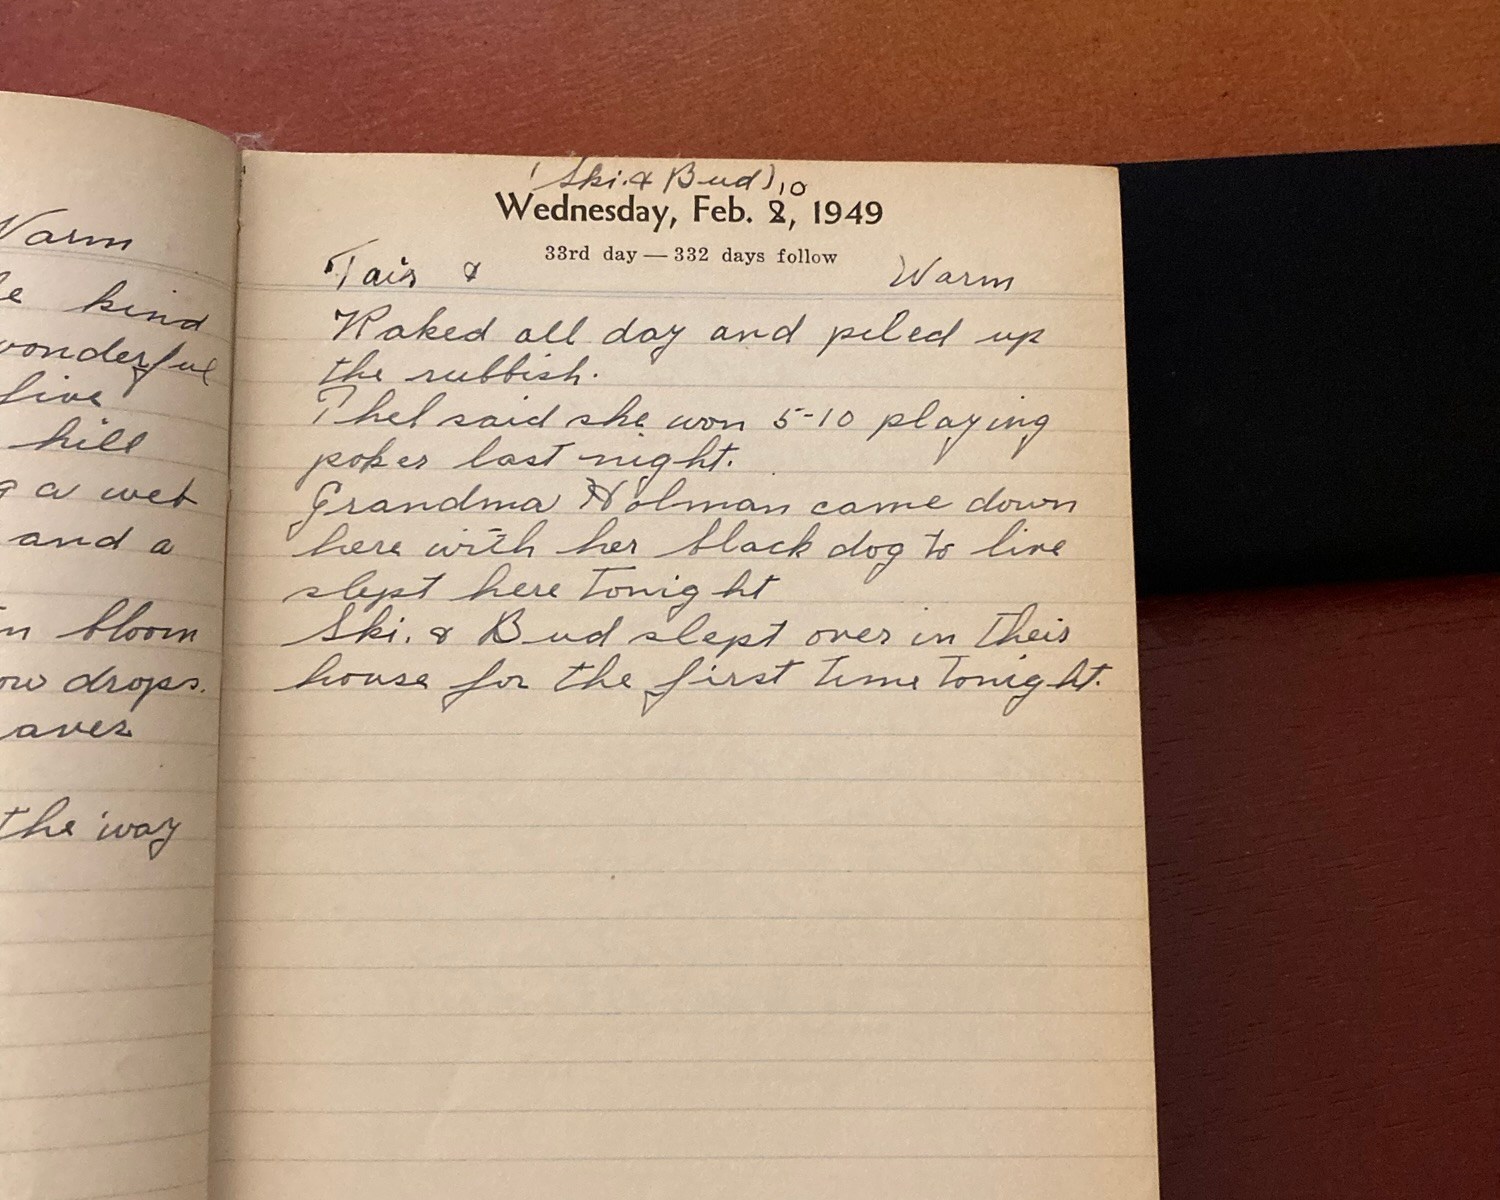 Warm
kind
wonderful
five
hill
a wet
and a
in bloom
ow drops.
aves
the way
(Ski. & Bud) 10
Wednesday, Feb. 2, 1949
33rd day — 332 days follow
Fair & Warm
Raked all day and piled up
the rubbish.
Thel said she won 5-10 playing
poker last night.
Grandma Holman came down
here with her black dog to live
slept here tonight
Ski. & Bud slept over in their
house for the first time tonight.